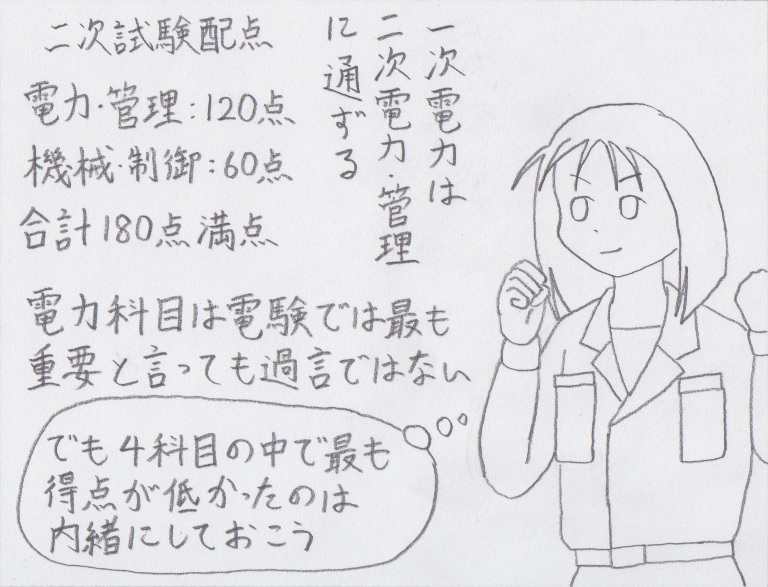 二次試験配点
電力・管理:120点
機械・制御:60点
合計180点満点
一次電力は
二次電力・管理
に通ずる
電力科目は電験では最も
重要と言っても過言ではない
でも4科目の中で最も
得点が低かったのは
内緒にしておこう